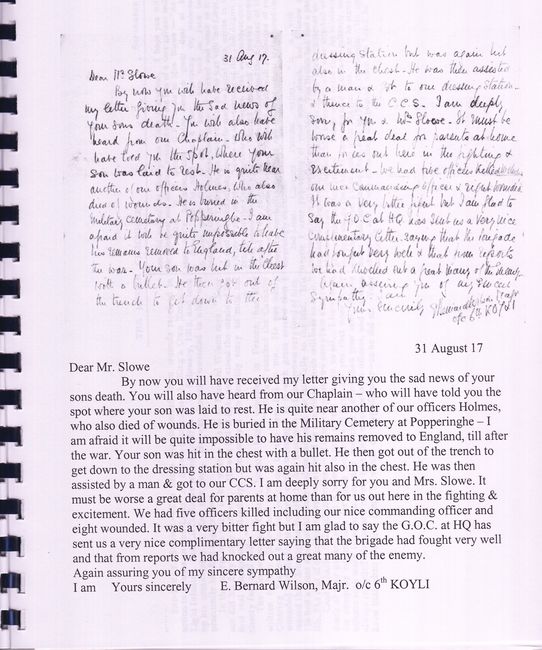 31 Aug 17.
Dear Mr Slowe
By now you will have received
my letter giving you the sad news of
your sons death. You will also have
heard from our Chaplain - who will
have told you the spot, where your
son was laid to rest. He is quite near
another of our officers Holmes, who also
died of wounds. He is buried in the
Military cemetery at Popperinghe - I am
afraid it will be quite impossible to have
his remains removed to England, till after
the war. Your son was hit in the chest
with a bullet. He then got out of
the trench to get down to the
dressing station but was again hit
also in the chest. He was then assisted
by a man & got to our dressing station
& thence to the C.C.S. I am deeply
sorry for you & Mrs Slowe. It must be
worse a great deal for parents at home
than for us out here in the fighting &
excitement. We had five officers killed
our nice commanding officer & eight wounded.
It was a very bitter fight but I am glad to
say the G.O.C at HQ has sent us a very nice
complimentary letter saying that the brigade
had fought very well & that from reports
we had knocked out a great many of the enemy.
Again assuring you of my sincere
sympathy I am
Yours sincerely
o/c 6th KOYLI
31 August 17
Dear Mr. Slowe
By now you will have received my letter giving you the sad news of your
sons death. You will also have heard from our Chaplain – who will have told you the
spot where your son was laid to rest. He is quite near another of our officers Holmes,
who also died of wounds. He is buried in the Military Cemetery at Popperinghe – I
am afraid it will be quite impossible to have his remains removed to England, till after
the war. Your son was hit in the chest with a bullet. He then got out of the trench to
get down to the dressing station but was again hit also in the chest. He was then
assisted by a man & got to our CCS. I am deeply sorry for you and Mrs. Slowe. It
must be worse a great deal for parents at home than for us out here in the fighting &
excitement. We had five officers killed including our nice commanding officer and
eight wounded. It was a very bitter fight but I am glad to say the G.O.C. at HQ has
sent us a very nice complimentary letter saying that the brigade had fought very well
and that from reports we had knocked out a great many of the enemy.
Again assuring you of my sincere sympathy
I am Yours sincerely E. Bernard Wilson, Majr. o/c 6th KOYLI